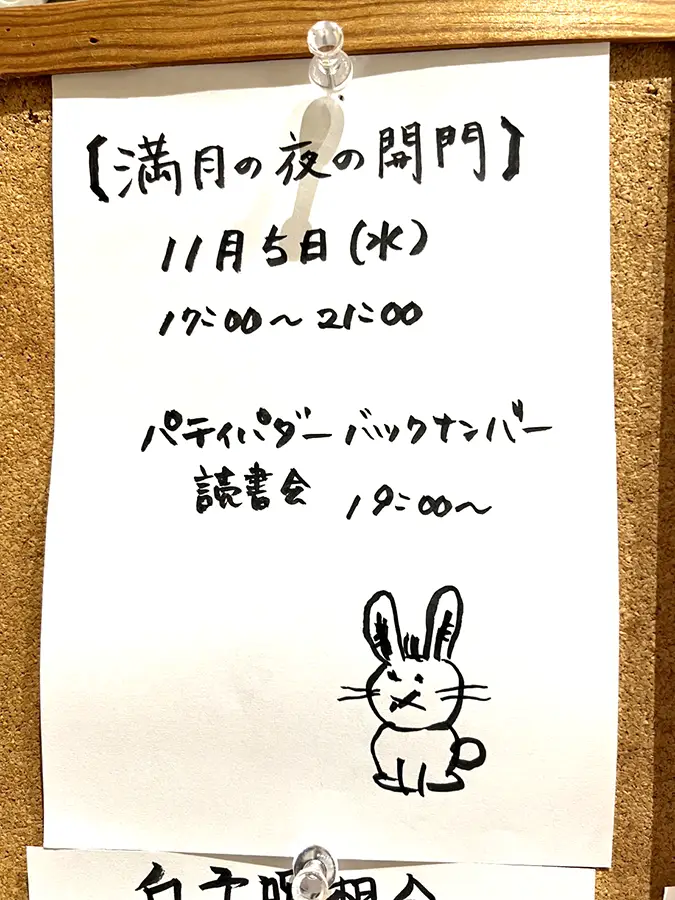 【満月の夜の開門】
11月5日(水)
17:00〜21:00
パティパダーバックナンバー
読書会 19:00〜